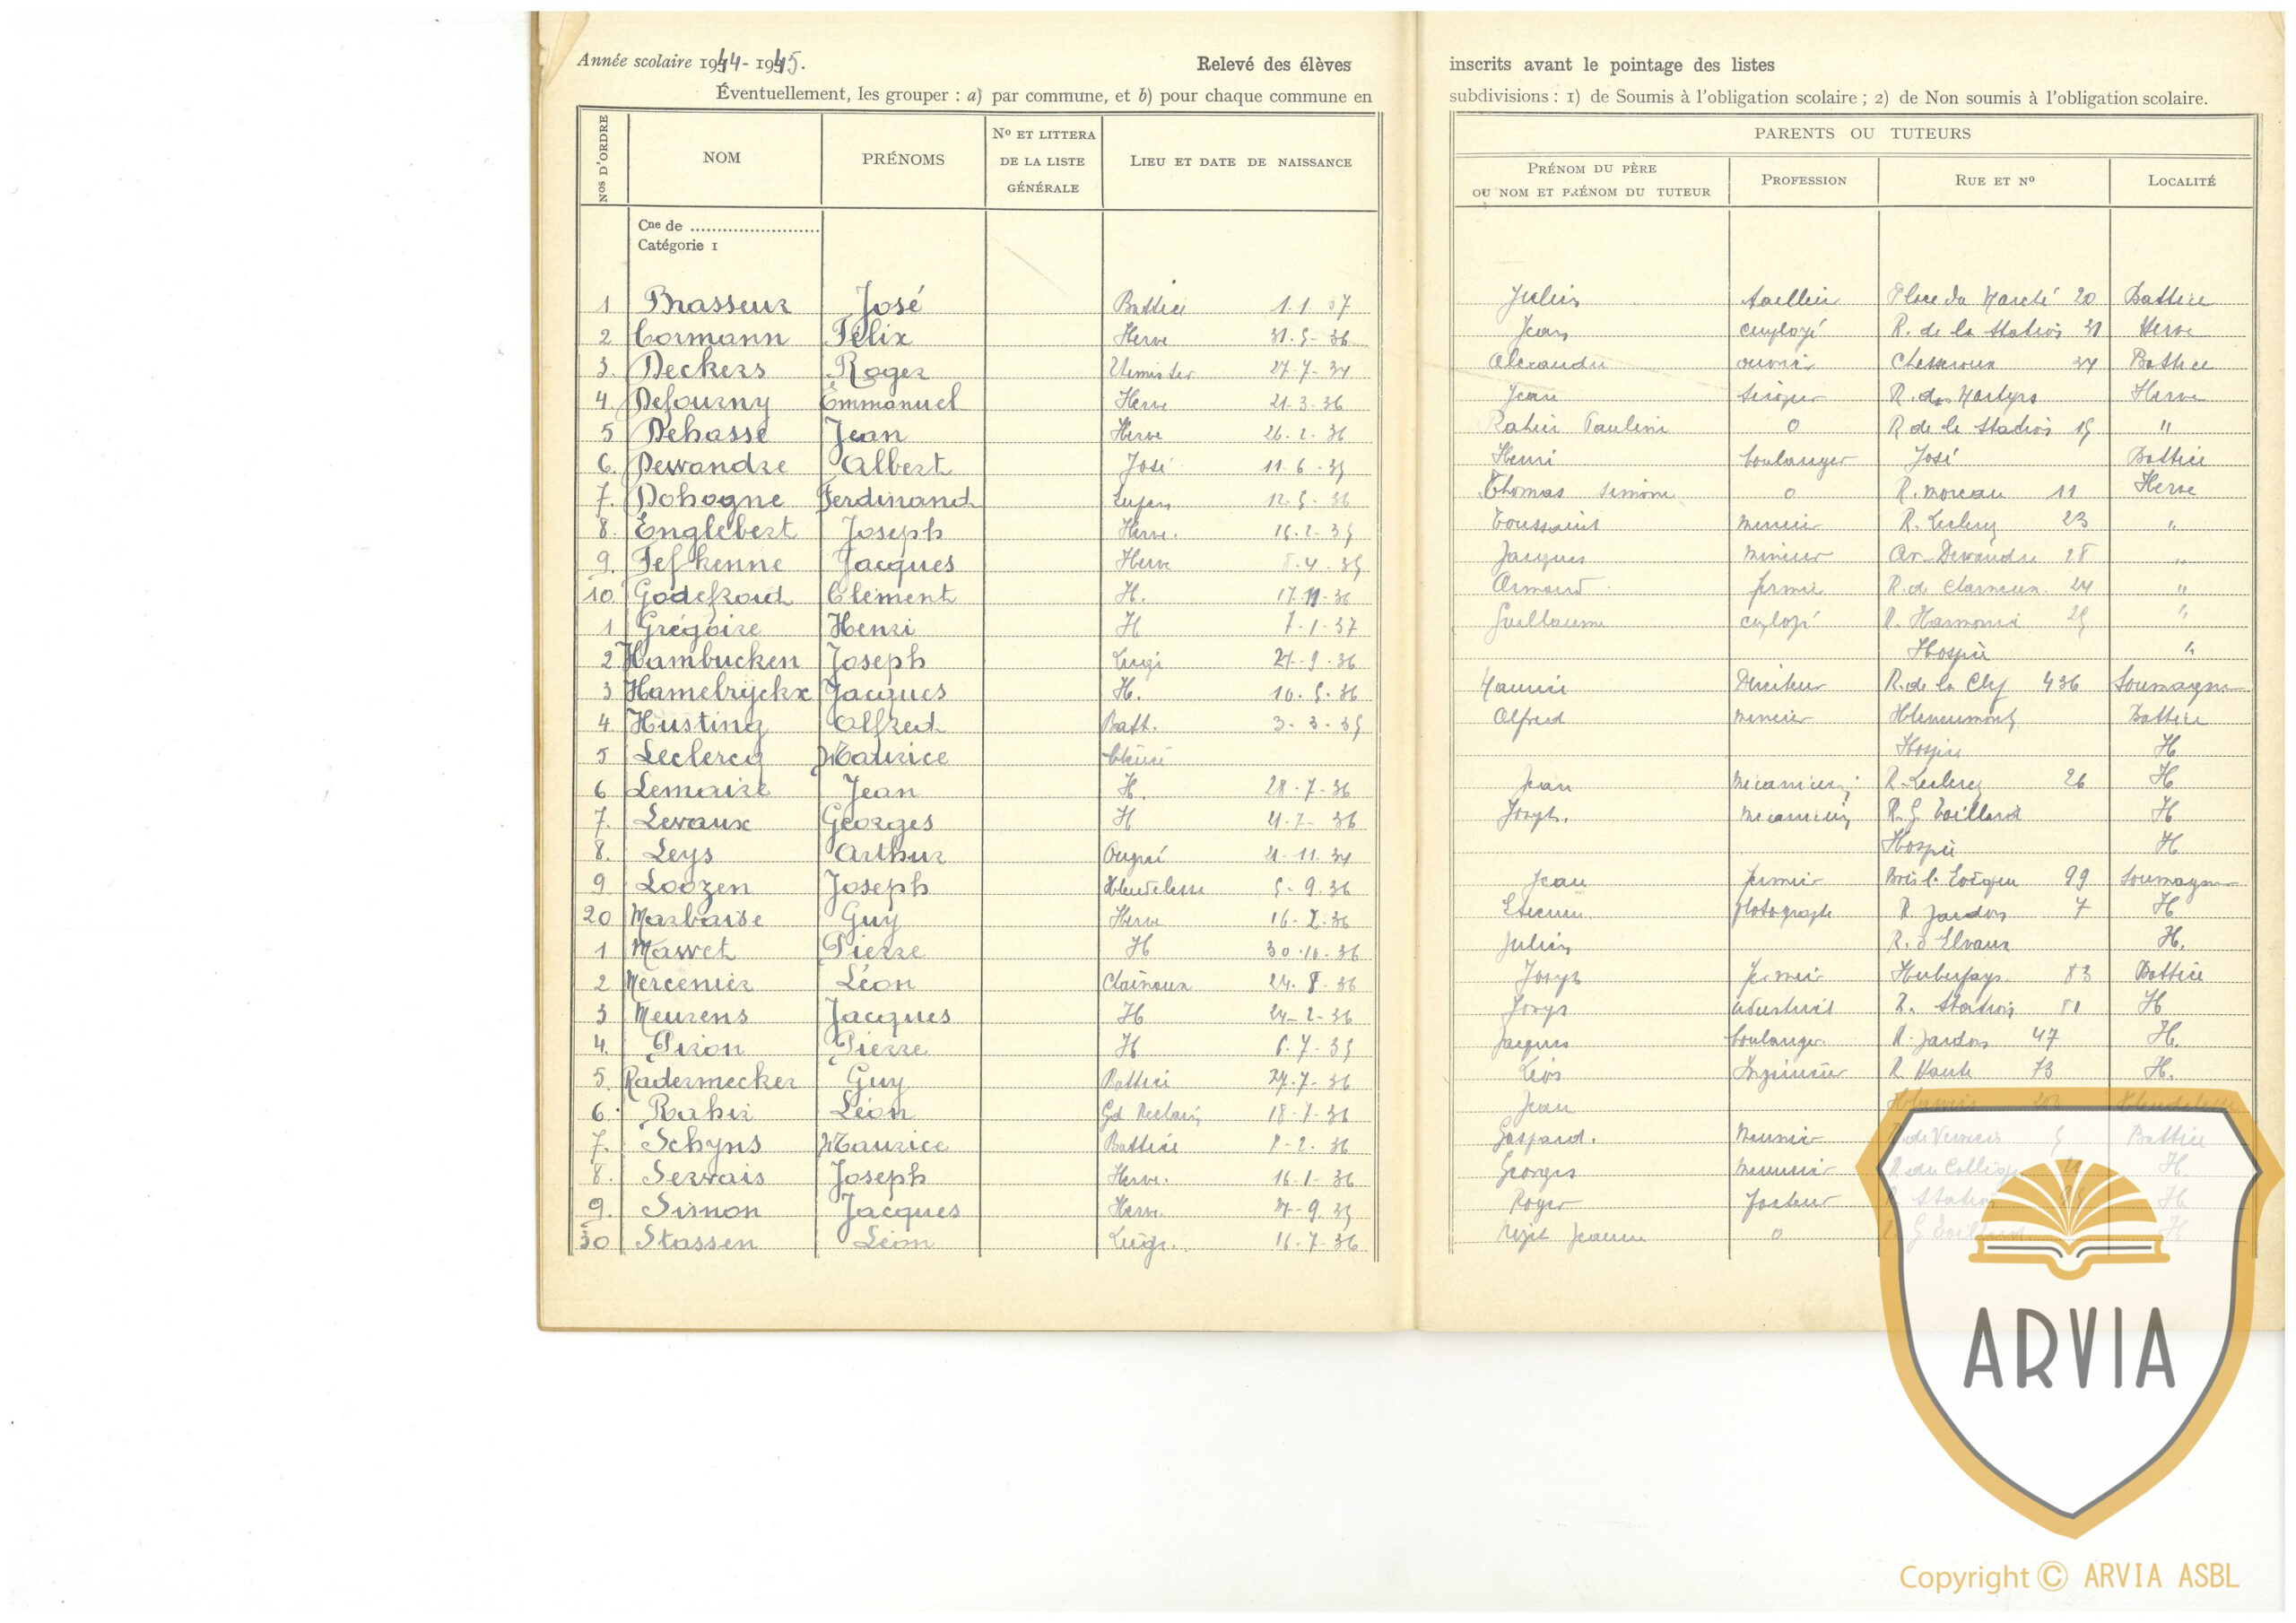 Année scolaire 1944-1945. Relevé des élèves inscrits avant le pointage des listes
Éventuellement, les grouper : a) par commune, et b) pour chaque commune en subdivisions : 1) de Soumis à l'obligation scolaire ; 2) de Non soumis à l'obligation scolaire.
PARENTS OU TUTEURS
Nos D'ORDRE NOM PRÉNOMS No ET LITTERA DE LA LISTE GÉNÉRALE LIEU ET DATE DE NAISSANCE PRÉNOM DU PÈRE OU NOM ET PRÉNOM DU TUTEUR PROFESSION RUE ET No LOCALITÉ
Cne de
Catégorie 1
1 Brasseur José Battice 1.1 37 Julien Place du Marché 20 Battice
2 Cormann Félix Herve 31-5-36 Jean employé R. de la Station 31 Herve
3. Deckers Roger 27-7-34 Alexandre ouvrier 34 Battice
4. Defourny Emmanuel Herve 21-3-36 Jean R. des Martyrs Herve
5 Dehasse Jean Herve 26-2-36 Rahier Pauline 0 R de la Station 15 "
6. Dewandre Albert José 11-6-35 Henri boulanger José Battice
7. Dohogne Ferdinand 12-5-36 Thomas Simone 0 R. Moreau 11 Herve
8. Englebert Joseph Herve. 15-2-35 Toussaint R. Leclercq 23 "
9. Fefkenne Jacques Herve 8-4-35 Jacques mineur Av. Dewandre 28 "
10 Godefroid Clément H. 17-11-36 Armand fermier R. de Charneux 24 "
1 Grégoire Henri H 7-1-37 Guillaume employé R. Harmonie 25 "
2 Hambucken Joseph Liège 27-9-36 Hospice "
3 Hamelryckx Jacques H. 10-5-36 Maurice Directeur R. de la Clef 436 Soumagne
4 Husting Alfred Batt. 3-3-35 Alfred Battice
5 Leclercq Maurice Hospice H
6 Lemaire Jean H. 28-7-36 Jean mécanicien R. Leclercq 26 H
7. Levaux Georges H Joseph. mécanicien R. G Taillard H
8. Leys Arthur Ougrée 21-11-34 Hospice H
9 Loozen Joseph 5-9-36 Jean fermier 99 Soumagne
20 Marbaise Guy Herve 16-2-36 Etienne photographe R Jardon 7 H
1 Mawet Pierre H 30-10-36 Julien R. d'Elvaux H.
2 Mercenier Léon Charneux 24-8-36 Joseph fermier 83 Battice
3 Meurens Jacques H 24-2-36 Joseph industriel R. Station 81 H
4. Piron Pierre H 6-7-35 Jacques boulanger R. Jardon 47 H.
5. Radermecker Guy Battice 27-7-36 Léon Ingénieur R Haute 73 H.
6. Rahir Léon Gd Rechain 18-7-36 Jean
7. Schyns Maurice Battice 8-2-36 Gaspard. Battice
8. Servais Joseph Herve. 16-1-36 Georges R. du Collège H
9. Simon Jacques Herve. Roger facteur R Station H
30 Stassen Léon Liège. 16-7-36 0 H
ARVIA
Copyright © ARVIA ASBL